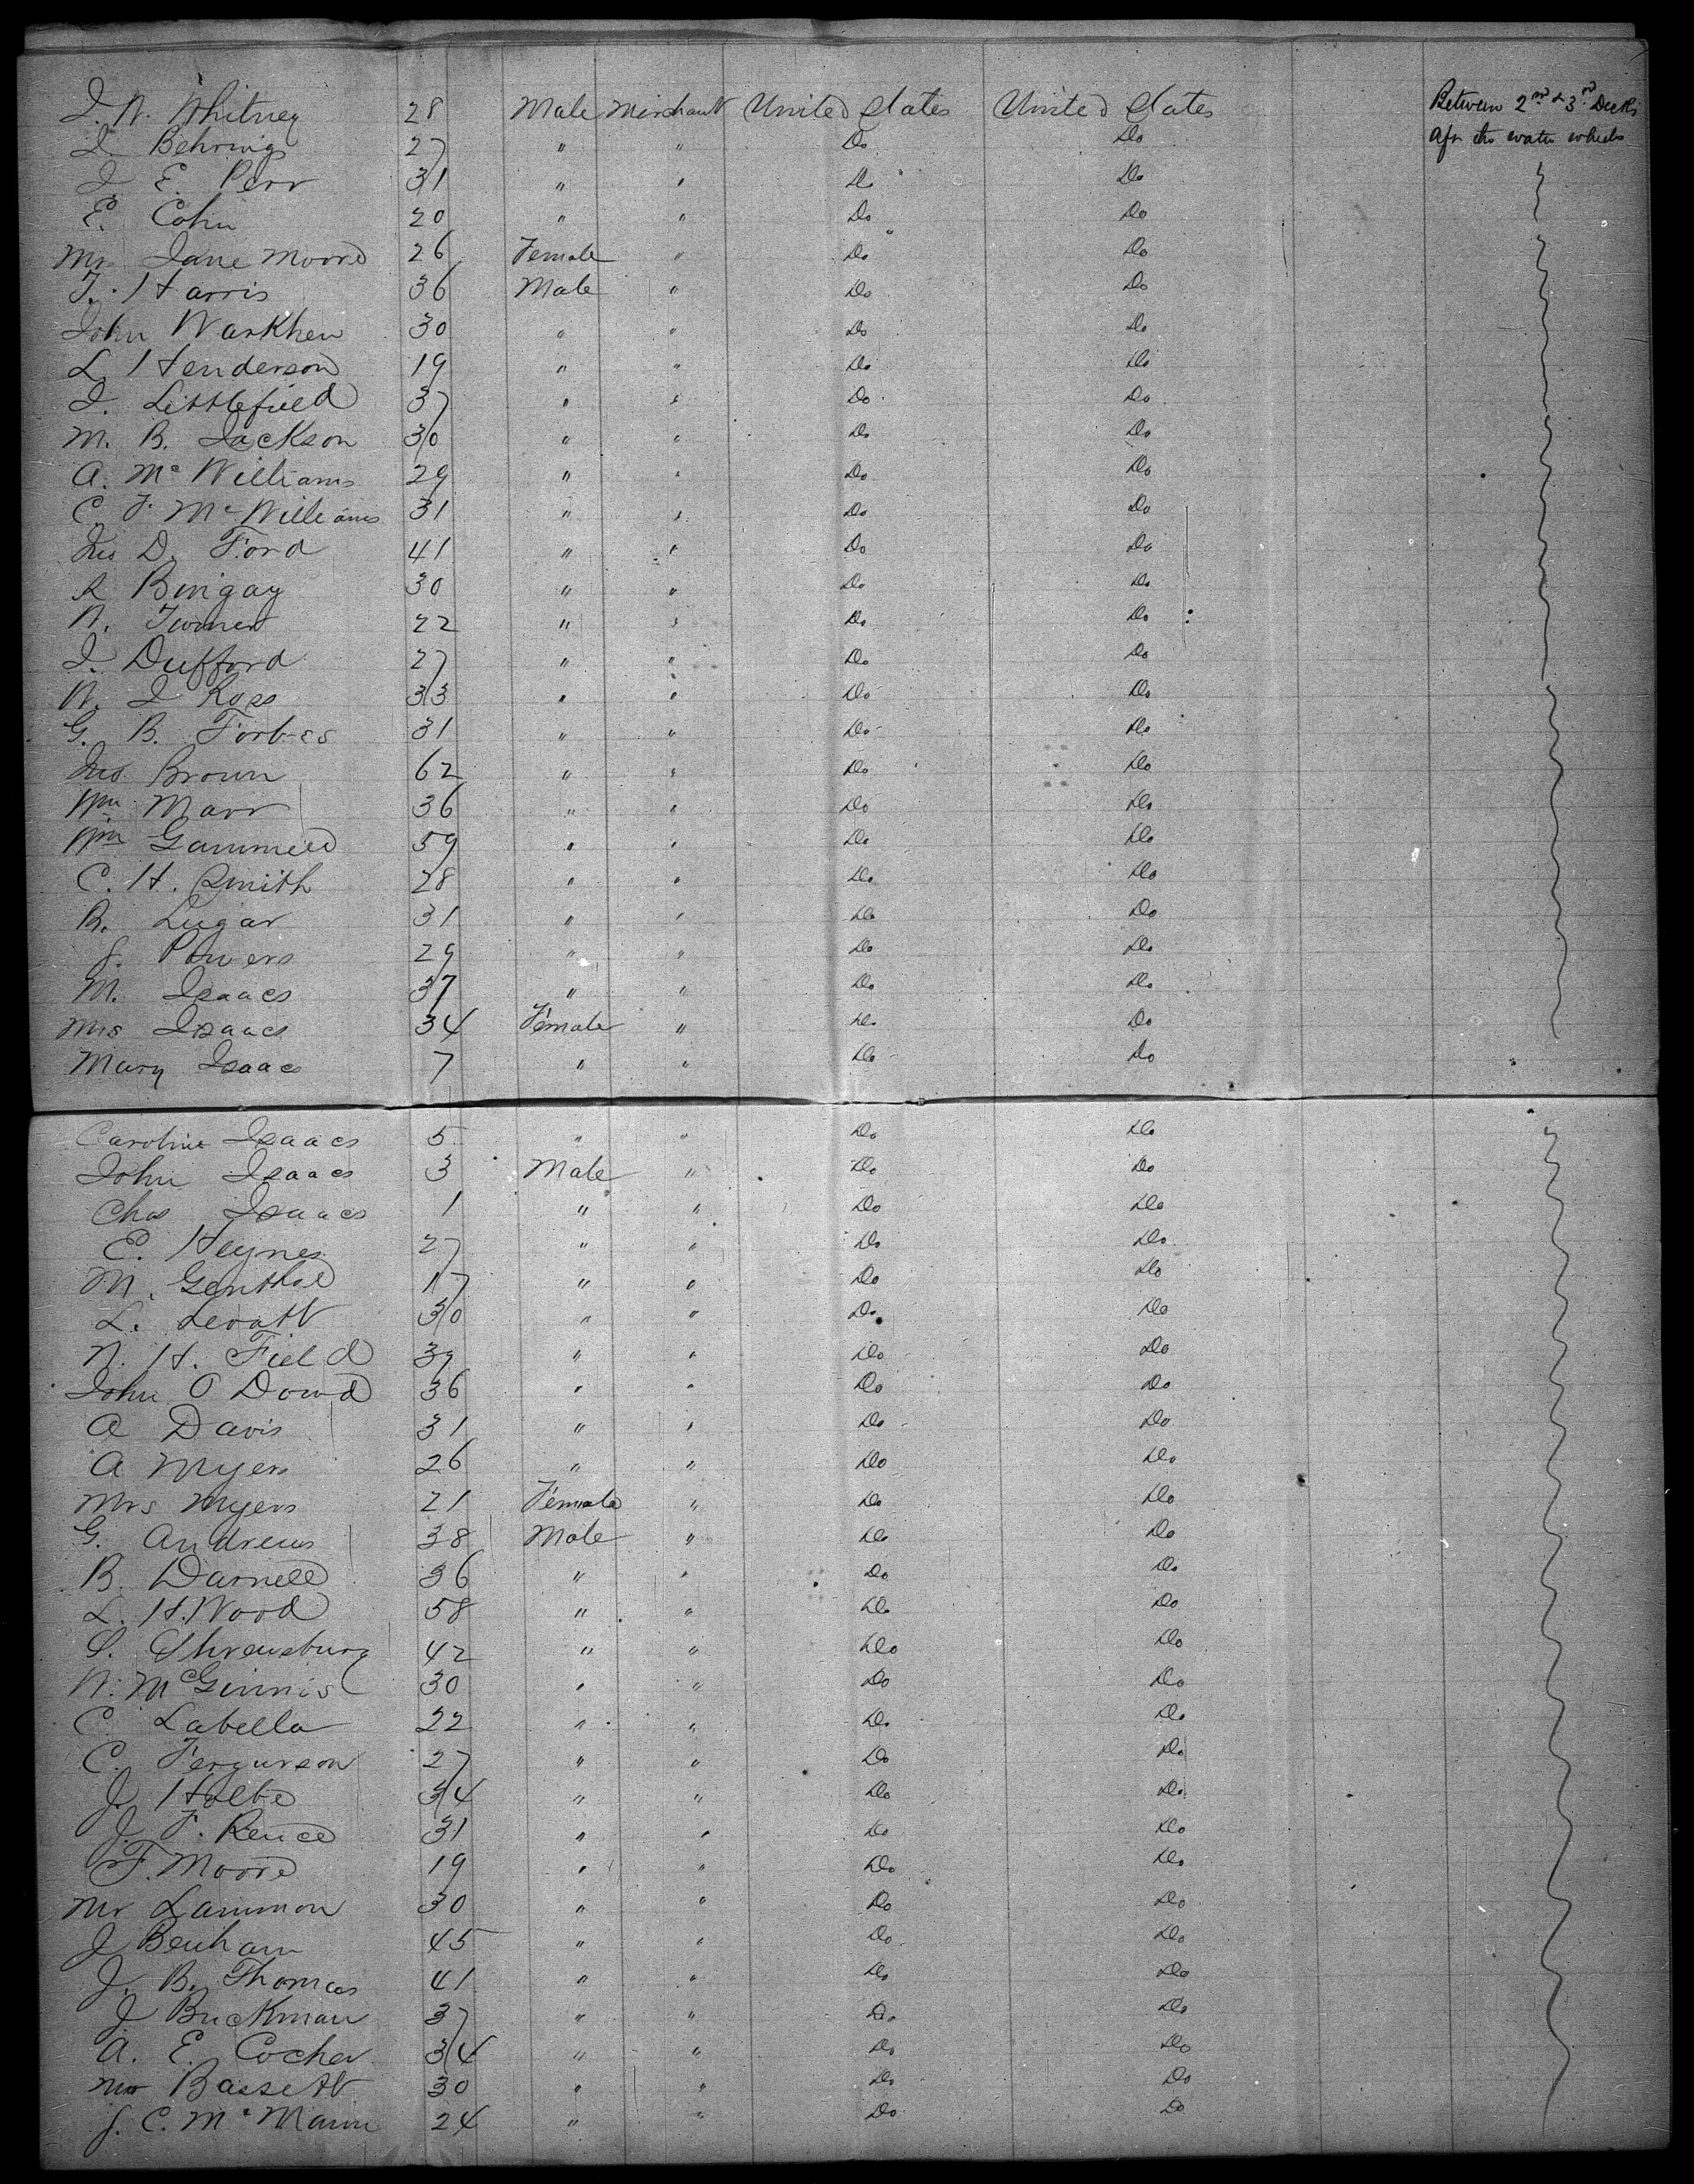 J. W. Whitney 28 Male Merchant United States United States Between 2nd & 3rd Decks
J. Behrings 27 " " Do Do Aft the water wheels
J E. Perr 31 " " Do Do
E. Cohn 20 " " Do Do
Mrs Jane Moore 26 Female " Do Do
T. Harris 36 Male " Do Do
John Warkhen 30 " " Do Do
L. Henderson 19 " " Do Do
J. Littlefield 37 " " Do Do
M. B. Jackson 30 " " Do Do
A. Mc Williams 29 " " Do Do
C. F. Mc Williams 31 " " Do Do
Jno D. Ford 41 " " Do Do
R Bingay 30 " " Do Do
W. Turner 22 " " Do Do
J. Dufford 27 " " Do Do
W. J Ross 33 " " Do Do
G. B. Forbes 31 " " Do Do
Jno Brown 62 " " Do Do
Wm Marr 36 " " Do Do
Wm Gammell 59 " " Do Do
C. H. Smith 28 " " Do Do
B. Lugar 31 " " Do Do
J. Powers 29 " " Do Do
M. Isaacs 37 " " Do Do
Mrs Isaacs 34 Female " Do Do
Mary Isaacs 7 " " Do Do
Caroline Isaacs 5 " " Do Do
John Isaacs 3 Male " Do Do
Chas Isaacs 1 " " Do Do
E. Heynes 27 " " Do Do
M. Genthol 17 " " Do Do
L. Levatt 30 " " Do Do
N. H. Field 39 " " Do Do
John O Dowd 36 " " Do Do
A Davis 31 " " Do Do
A Myers 26 " " Do Do
Mrs Myers 21 Female " Do Do
G. Andrews 38 Male " Do Do
B. Darnell 36 " " Do Do
L. H. Wood 58 " " Do Do
S. Shrewsbury 42 " " Do Do
W. McGinnis 30 " " Do Do
C Labella 22 " " Do Do
C. Fergurson 27 " " Do Do
J. Holbe 34 " " Do Do
J. F. Rence 31 " " Do Do
F. Moore 19 " " Do Do
Mr Lammon 30 " " Do Do
J Benham 45 " " Do Do
J. B. Thomas 41 " " Do Do
J Buckman 37 " " Do Do
A. E. Cocher 34 " " Do Do
Mr Bassett 30 " " Do Do
J. C. Mc Mann 24 " " Do Do